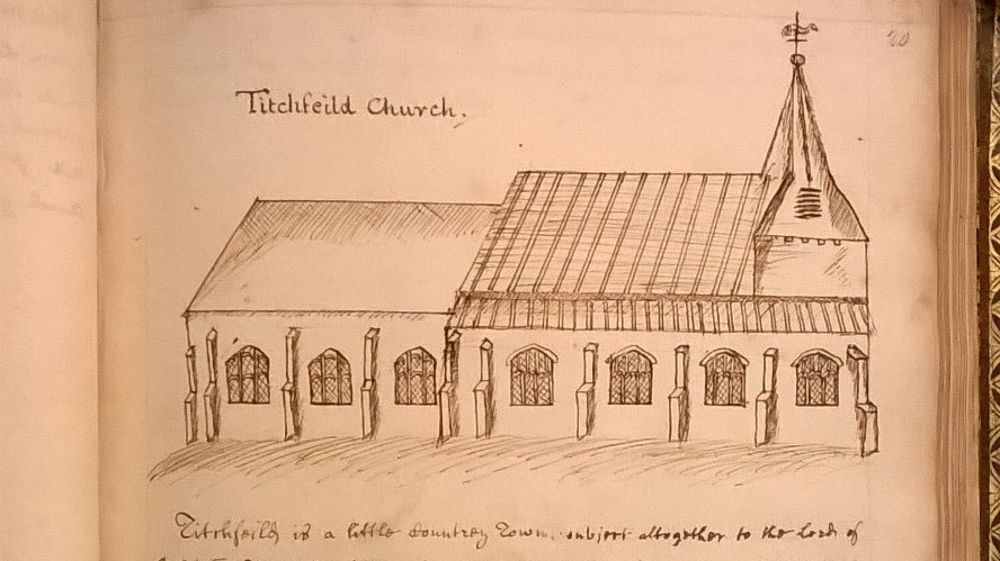 20
Titchfeild Church.
Titchfeild is a little Countrey Town, subject altogether to the Lord of